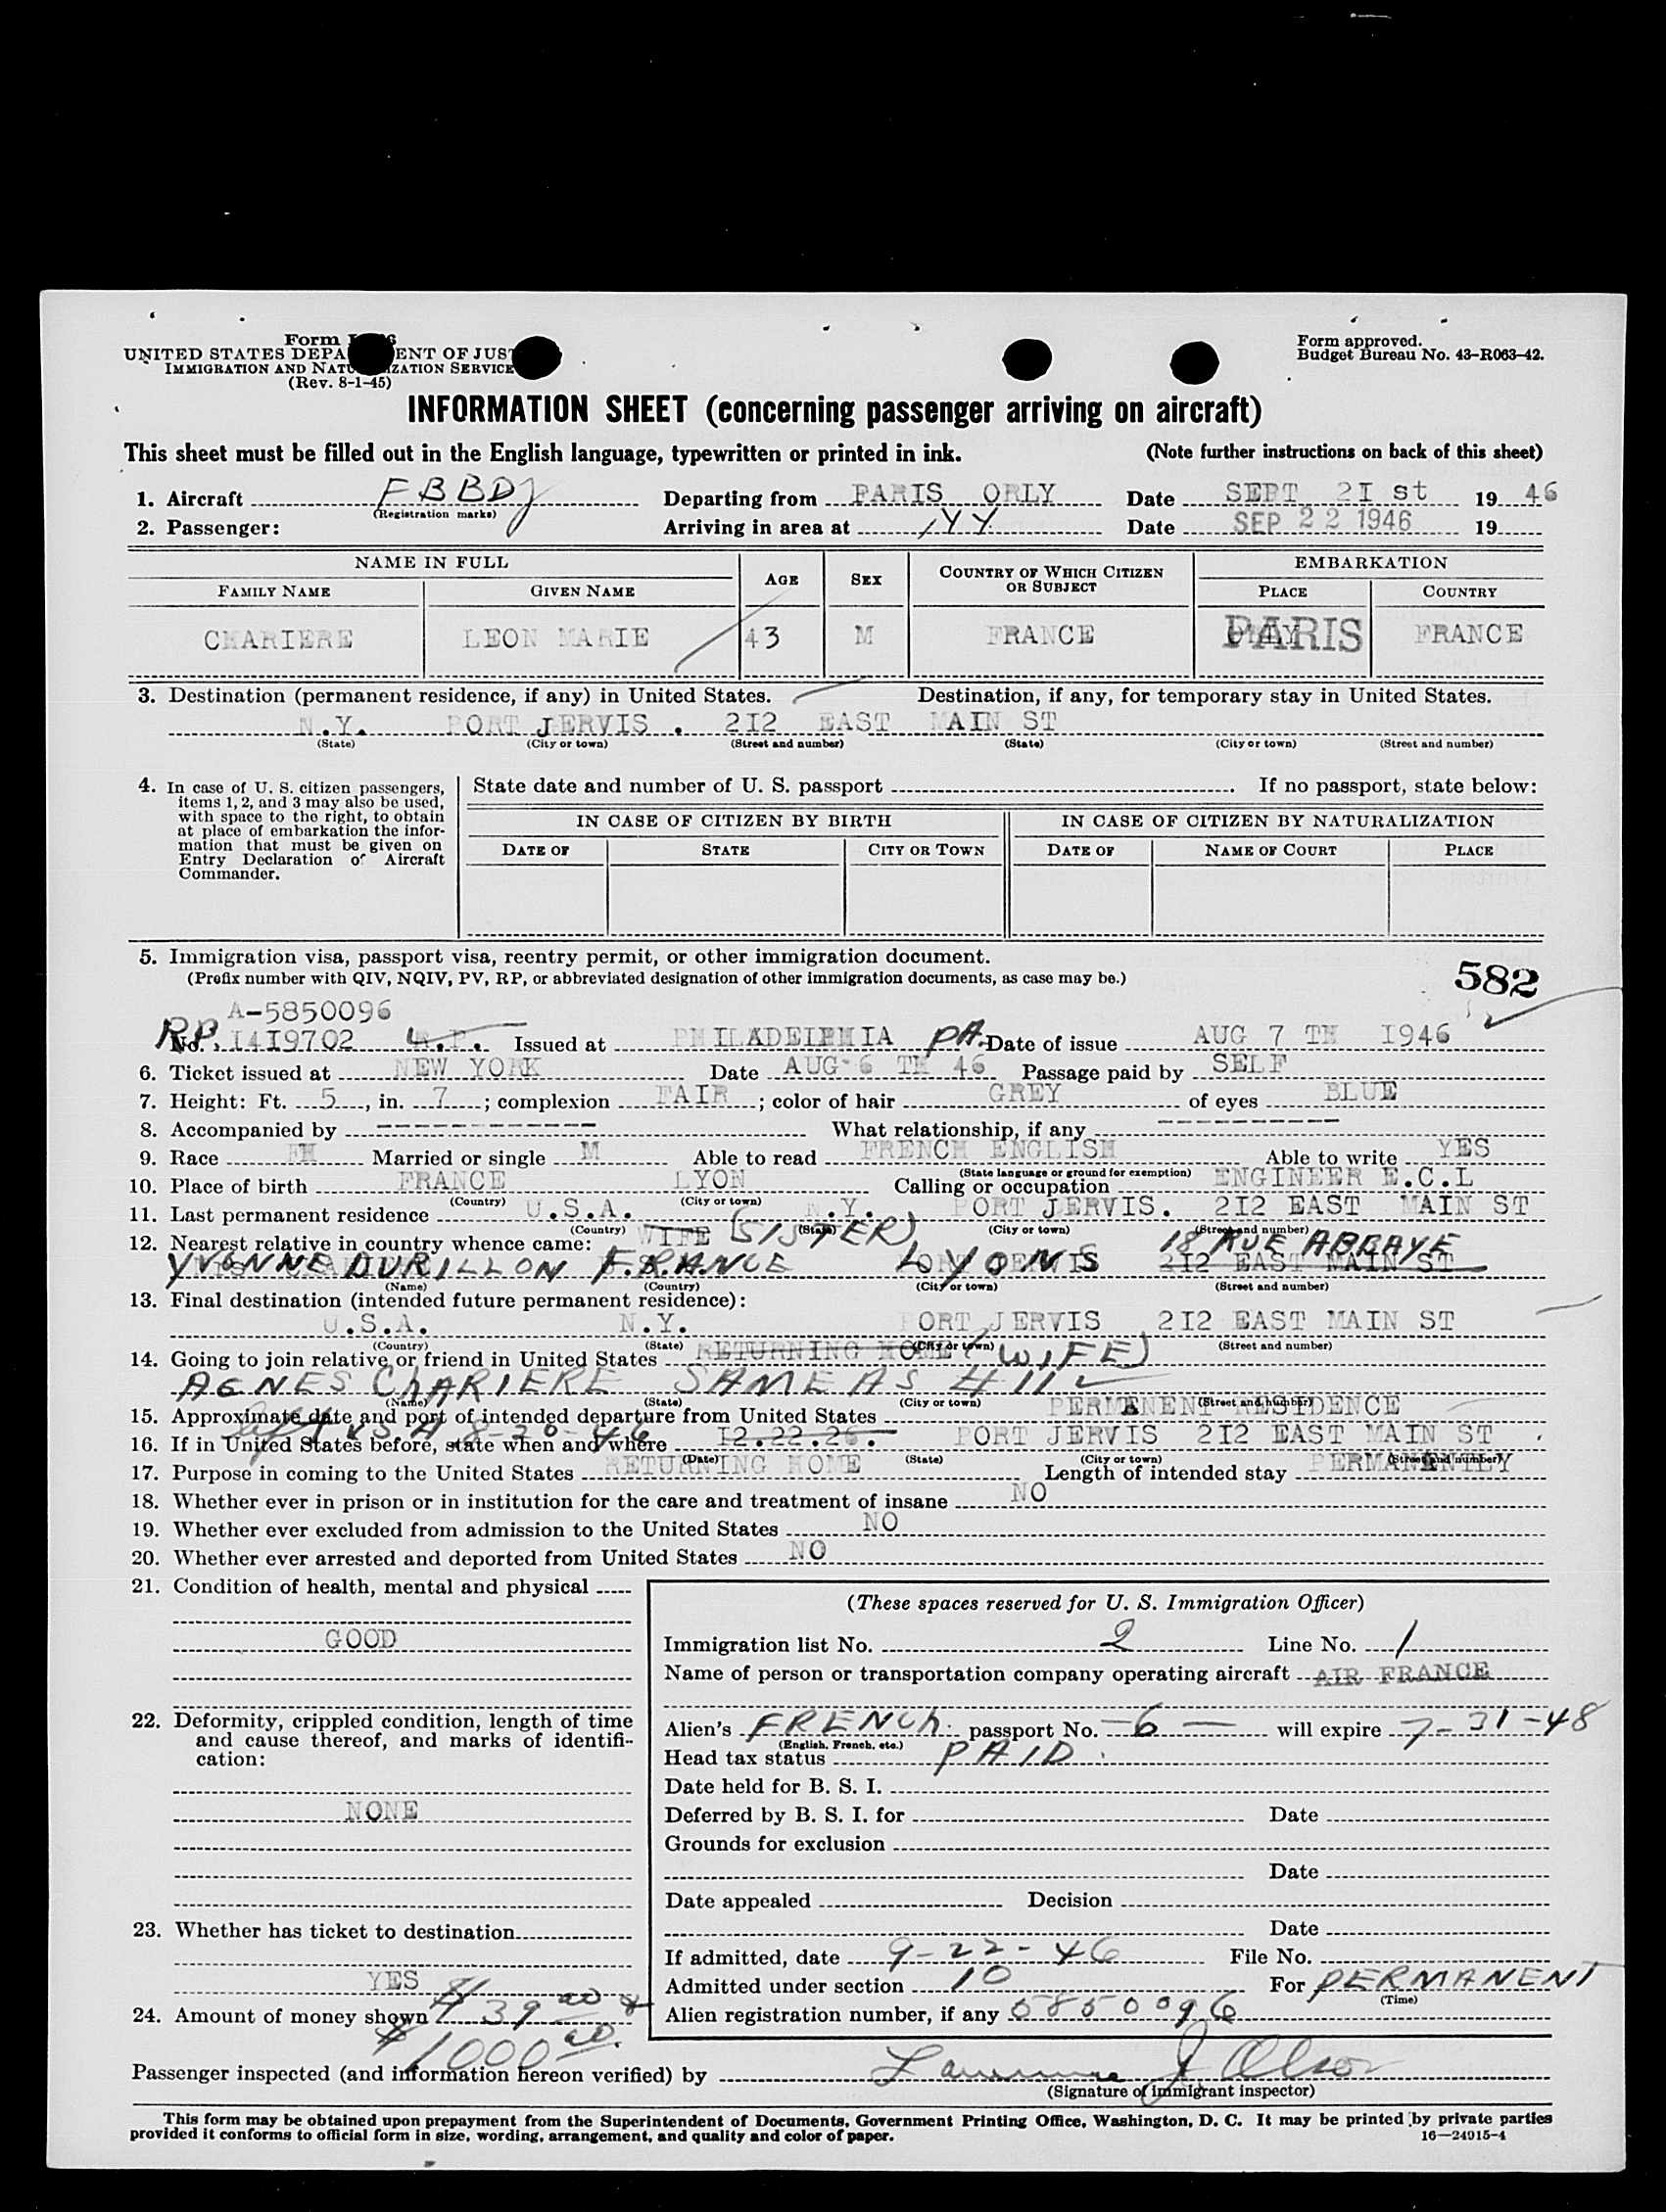 Form
UNITED STATES DEPARTMENT OF JUSTICE
IMMIGRATION AND NATURALIZATION SERVICE
(Rev. 8-1-45)
Form approved.
Budget Bureau No. 43-R063-42.
INFORMATION SHEET (concerning passenger arriving on aircraft)
This sheet must be filled out in the English language, typewritten or printed in ink. (Note further instructions on back of this sheet)
1. Aircraft FBBDJ Departing from PARIS ORLY Date SEPT 2I st 19 46
(Registration marks)
2. Passenger: Arriving in area at Date SEP 22 1946 19
NAME IN FULL AGE SEX COUNTRY OF WHICH CITIZEN OR SUBJECT EMBARKATION
FAMILY NAME GIVEN NAME PLACE COUNTRY
CHARIERE LEON MARIE 43 M FRANCE PARIS FRANCE
3. Destination (permanent residence, if any) in United States. Destination, if any, for temporary stay in United States.
N.Y. PORT JERVIS . 2I2 EAST MAIN ST
(State) (City or town) (Street and number) (State) (City or town) (Street and number)
4. In case of U. S. citizen passengers, items 1, 2, and 3 may also be used, with space to the right, to obtain at place of embarkation the information that must be given on Entry Declaration of Aircraft Commander.
State date and number of U. S. passport If no passport, state below:
IN CASE OF CITIZEN BY BIRTH IN CASE OF CITIZEN BY NATURALIZATION
DATE OF STATE CITY OR TOWN DATE OF NAME OF COURT PLACE
5. Immigration visa, passport visa, reentry permit, or other immigration document.
(Prefix number with QIV, NQIV, PV, RP, or abbreviated designation of other immigration documents, as case may be.)
582
A-5850096
RP. No. I4I9702 Issued at PHILADELPHIA PA. Date of issue AUG 7 TH I946
6. Ticket issued at NEW YORK Date AUG- 6 TH 46 Passage paid by SELF
7. Height: Ft. 5, in. 7; complexion FAIR; color of hair GREY of eyes BLUE
8. Accompanied by ------------- What relationship, if any -----------
9. Race FH Married or single M Able to read FRENCH ENGLISH Able to write YES
(State language or ground for exemption)
10. Place of birth FRANCE LYON Calling or occupation ENGINEER E.C.L
(Country) (City or town)
11. Last permanent residence U.S.A. N.Y. PORT JERVIS. 2I2 EAST MAIN ST
(Country) (State) (City or town) (Street and number)
12. Nearest relative in country whence came: WIFE (SISTER) 18 RUE ABBAYE
YVONNE DURILLON FRANCE LYONS 2I2 EAST MAIN ST
(Name) (Country) (City or town) (Street and number)
13. Final destination (intended future permanent residence):
U.S.A. N.Y. PORT JERVIS 2I2 EAST MAIN ST
(Country) (State) (City or town) (Street and number)
14. Going to join relative or friend in United States RETURNING HOME (WIFE)
AGNES CHARIERE SAME AS # 11
(Name) (State) (City or town) (Street and number)
15. Approximate date and port of intended departure from United States PERMANENT RESIDENCE
left USA 8-20-46
16. If in United States before, state when and where I2.22.26. PORT JERVIS 2I2 EAST MAIN ST
(Date) (State) (City or town) (Street and number)
17. Purpose in coming to the United States RETURNING HOME Length of intended stay PERMANENTLY
18. Whether ever in prison or in institution for the care and treatment of insane NO
19. Whether ever excluded from admission to the United States NO
20. Whether ever arrested and deported from United States NO
21. Condition of health, mental and physical
GOOD
22. Deformity, crippled condition, length of time and cause thereof, and marks of identification:
NONE
23. Whether has ticket to destination
YES
24. Amount of money shown $ 39 00 &
$1000 00.
(These spaces reserved for U. S. Immigration Officer)
Immigration list No. 2 Line No. 1
Name of person or transportation company operating aircraft AIR FRANCE
Alien's FRENCH passport No. -6- will expire 7-31-48
(English, French, etc.)
Head tax status PAID
Date held for B. S. I.
Deferred by B. S. I. for Date
Grounds for exclusion
Date
Date appealed Decision
Date
If admitted, date 9-22-46 File No.
Admitted under section 10 For PERMANENT
(Time)
Alien registration number, if any 5850096
Passenger inspected (and information hereon verified) by Lawrence J Olson
(Signature of immigrant inspector)
This form may be obtained upon prepayment from the Superintendent of Documents, Government Printing Office, Washington, D. C. It may be printed by private parties
provided it conforms to official form in size, wording, arrangement, and quality and color of paper. 16—24915-4